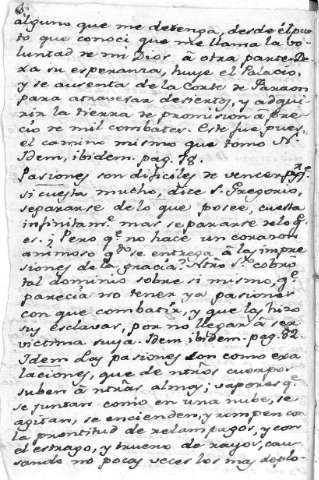 alguno que me detenga, desde el pun-
to, que conoci que me llama la vo-
luntad de mi Dios à otra parte. De-
xa su esperanza, huye el Palacio,
y se ausenta de la Corte de Faraon
para atravesar desiertos, y adqui-
rir la tierra de promision à pre-
cio de mil combates. Este fue pues
el camino mismo que tomo Nº.
Idem, ibidem. pag. 78.
Pasiones son dificiles de vencer, p.q.
si cuesta mucho, dice S. Gregorio,
separarse de lo que posee, cuesta
infinitam.te mas separarse de lo q.e
es. Pero q.e no hace un corazon
animoso q.do se entrega à las impre-
siones de la gracia? Ntro S.to cobrò
tal dominio sobre si mismo, q.e
parecia no tener ya pasiones
con que combatir, y que las hizo
sus esclavas, por no llegar à ser
victima suya. Idem ibidem. pag. 82.
Idem Las pasiones son como exa-
laciones, que de ntros cuerpos
suben à ntras almas; vapores q.e
se juntan como en una nube, se
agitan, se encienden, y rompen con
la prontitud de relampagos, y con
el estrago, y trueno de rayos, cau-
sando no pocas veces los mas deplo-